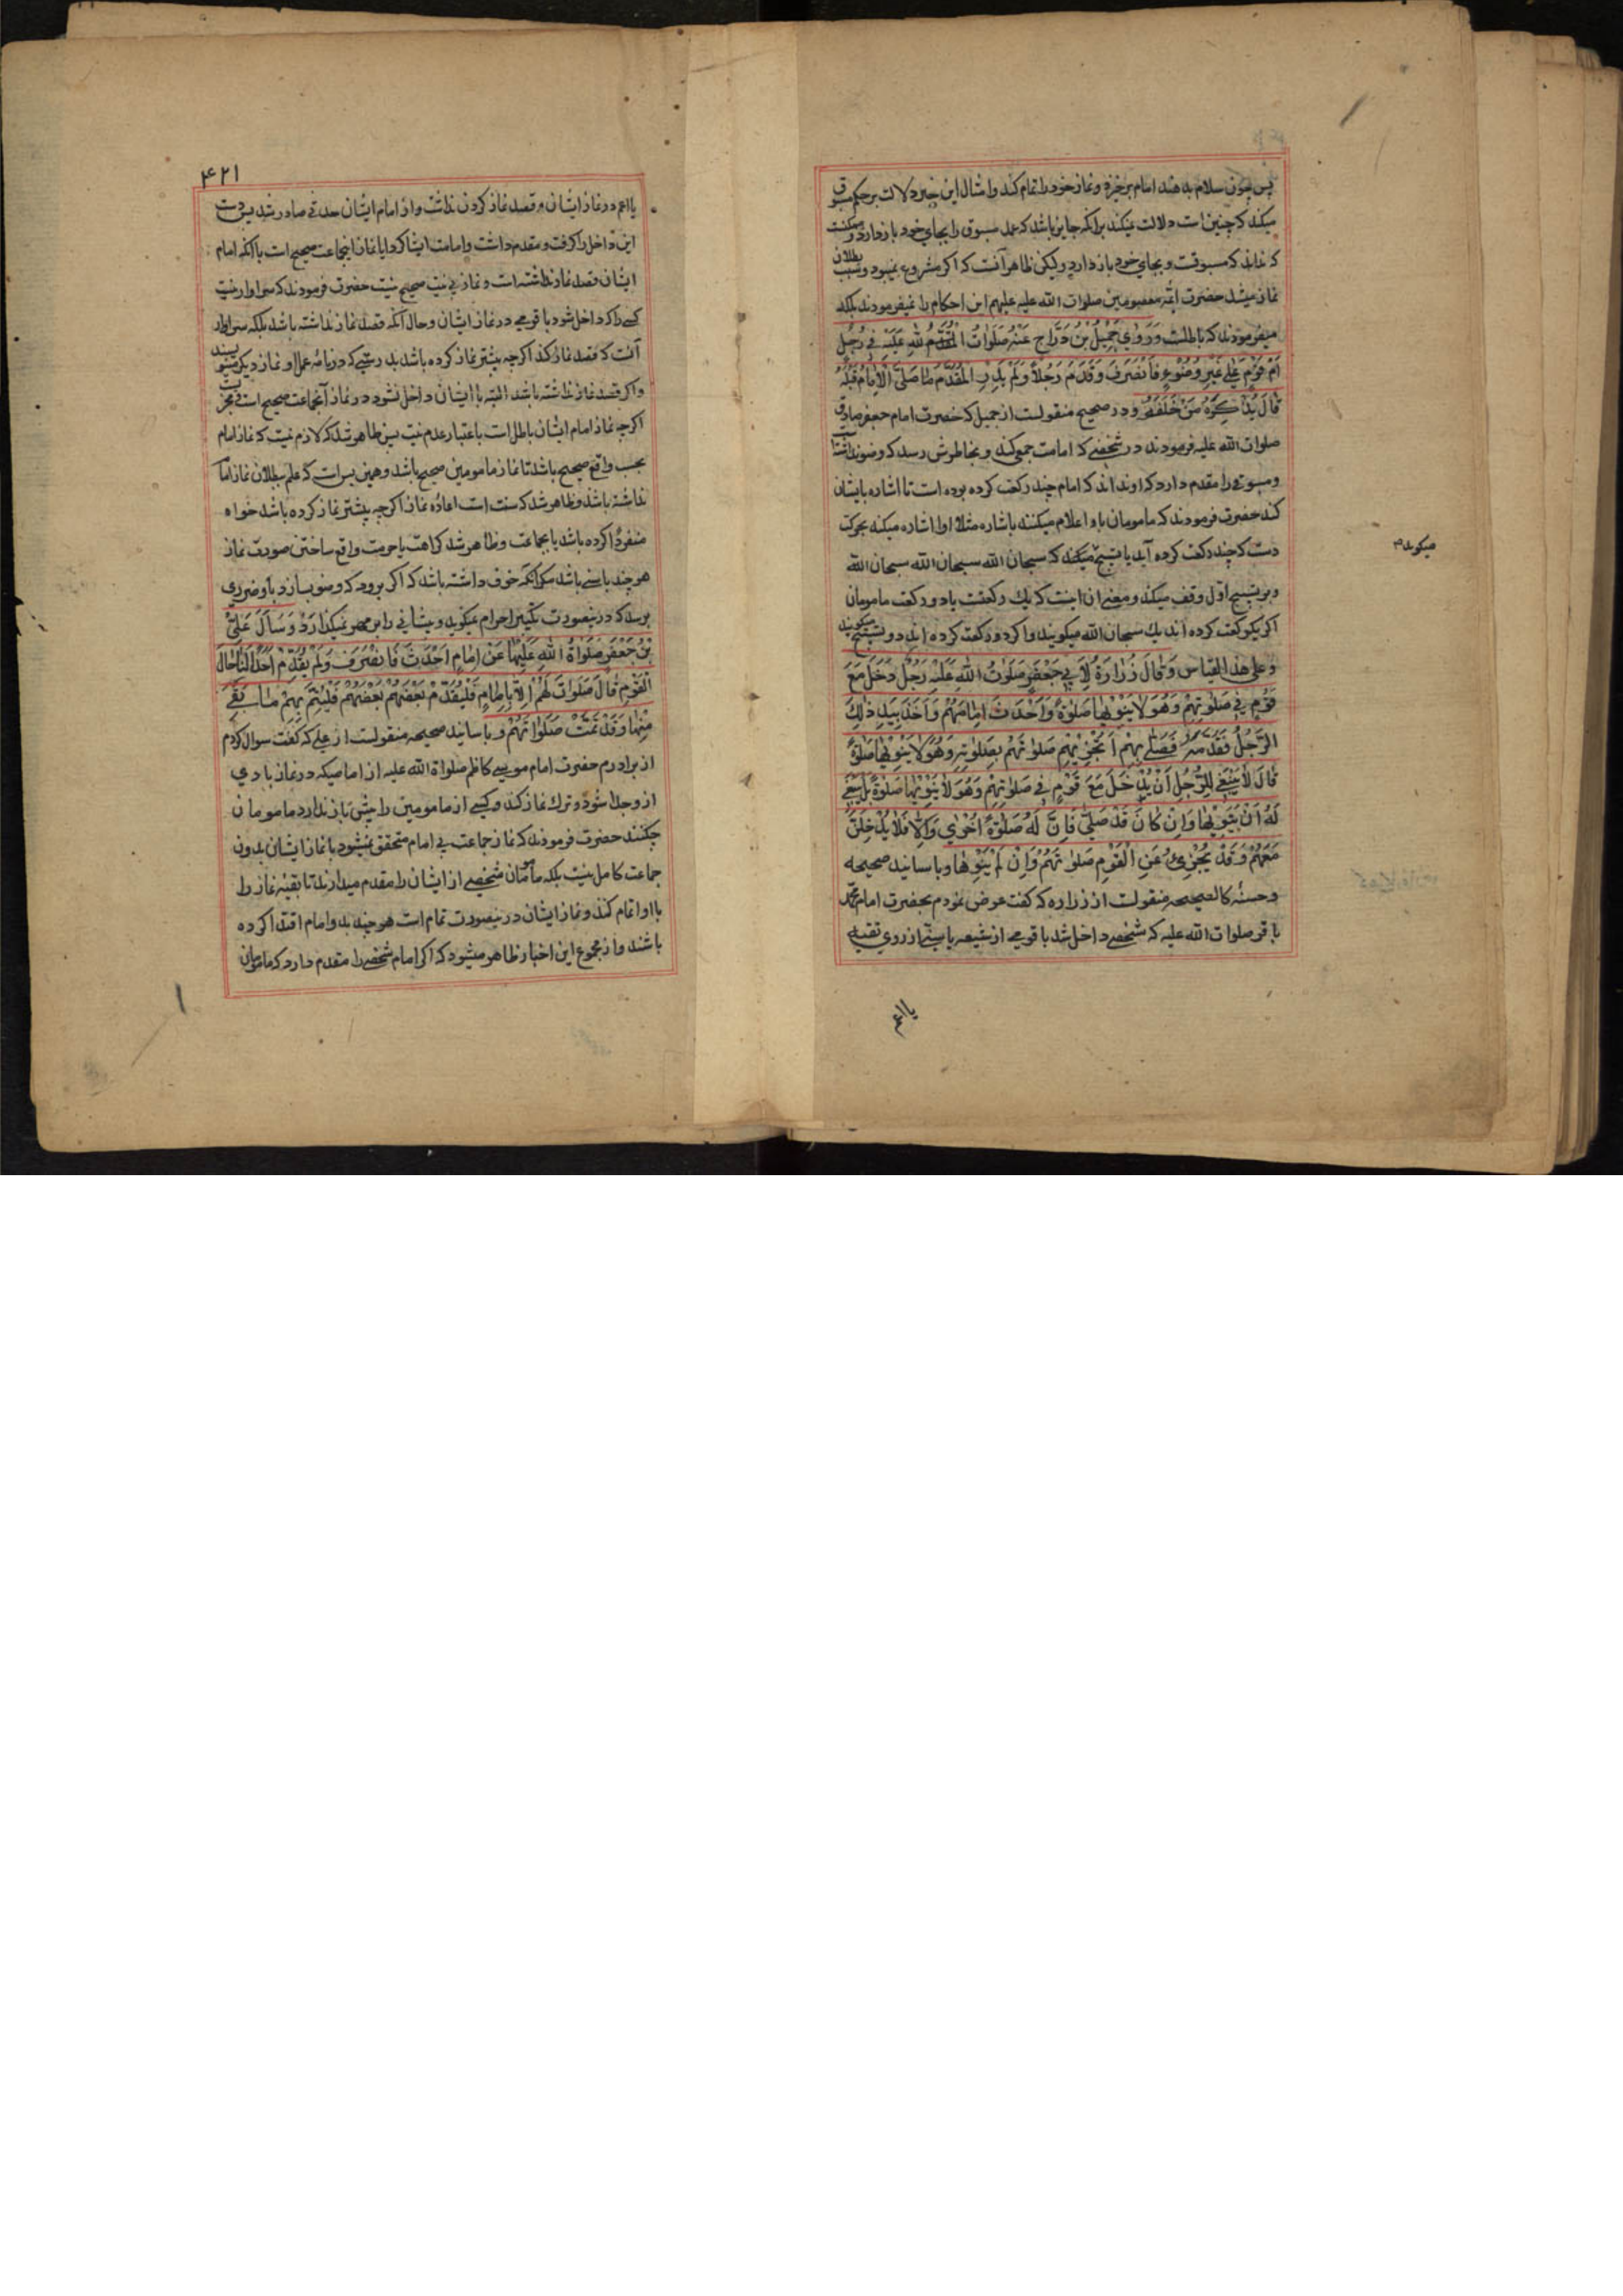 پس چون سلام بدهند امام برخیزد و نماز خود را تمام کند و امثال این خبر دلالت بر حکم مسبوق
میکند که چنین است دلالت نمیکند برانکه جایز باشد که عمل مسبوق را بجای خود باز دارد و ممکنست
که نداند که مسبوقست و بجای خود باز دارد و لیکن ظاهر آنست که اکر مشروع نمیبود و سبب بطلان
نماز میشد حضرت ائمّه معصومین صلوات الله علیه علیهم این احکام را نمیفرمودند بلکه
میفرمودند که باطلست وَرَوٰي جَمِیْلُ بْنُ دَرَّاجٍ عَنْهُ صَلَوَاتُ اللهِ عَلَیْهِ فِي رَجُلٍ
اَمَّ قَوْمٍ عَلٰي غَیْرِ وُضُوْءٍ فَانْصَرَفَ وَقَدَّمَ رَجُلاً وَلَمْ یَدْرِ الْمُقَدَّمُ مَا صَلَّي الْاِمَامُ قَبْلَهُ
قَالَ یُذَكِّرُهُ مَنْ خَلْفَهُ و در صحیح منقولست از جمیل که حضرت امام جعفر صادق
صلوات الله علیه فرمودند در شخصی که امامت جمعی کند و بخاطرش رسد که وضو نداشته
و مسبوقی را مقدم دارد که او نداند که امام چند رکعت کرده بوده است تا اشاره بایشان
کند حضرت فرمودند که مامومان باو اعلام میکنند باشاره مثلا او اشاره میکند بحرکت
دست که چند رکعت کرده آید یا تسبیح میکنند که سبحان الله سبحان الله سبحان الله
میکوید
و بر تسبیح اوّل وقف میکند و معنی ان اینست که یك رکعتست یا دو رکعت مامومان
اکر یکرکعت کرده اند یك سبحان الله میکویند و اکر دو رکعت کرده اند دو تسبیح میکویند
و علی هذا القیاس وَقَالَ زُرَارَةُ لِاَبِي جَعْفَرٍ صَلَوٰتُ اللهِ عَلَیْهِ رَجُلٌ دَخَلَ مَعَ
قَوْمٍ فِي صَلٰوتِهِمْ وَهُوَ لَا یَنْوِیْهَا صَلٰوةً وَاَحْدَثَ اِمَامُهُمْ وَاَخَذَ بِیَدِ ذٰلِكَ
الرَّجُلِ فَقَدَّمَهُ فَصَلّٰي بِهِمْ اَتُجْزِیْهِمْ صَلٰوتُهُمْ بِصَلٰوتِهِ وَهُوَ لَا یَنْوِیْهَا صَلٰوةً
قَالَ لَا یَنْبَغِي لِلرَّجُلِ اَنْ یَدْخُلَ مَعَ قَوْمٍ فِي صَلٰوتِهِمْ وَهُوَ لَا یَنْوِیْهَا صَلٰوةً بَلْ یَنْبَغِي
لَهُ اَنْ یَنْوِیَهَا وَاِنْ كَانَ قَدْ صَلّٰي فَاِنَّ لَهُ صَلٰوةً اُخْرٰي وَاِلَّا فَلَا یَدْخُلَنَّ
مَعَهُمْ وَقَدْ یُجْزِیُٔ عَنِ الْقَوْمِ صَلٰوتُهُمْ وَاِنْ لَمْ یَنْوِهَا و باسانید صحیحه
و حسنهٔ کالصحیحه منقولست از زراره که کفت عرض نمودم بحضرت امام محمّد
باقر صلوات الله علیه که شخصی داخل شد با قومی از شیعه یا سنّی از روی تقیه
یا اعم
۴۲۱
یا اعم در نماز ایشان و قصد نماز کردن نداشت و از امام ایشان حدثی صادر شد پس دست
این داخل را کرفت و مقدم داشت و امامت ایشا کرد ایا نماز اینجماعت صحیح است با انکه امام
ایشان قصد نماز نداشته است و نماز بی نیت صحیح نیست حضرت فرمودند که سزاوار نیست
کسی را که داخل شود با قومی در نماز ایشان و حال آنکه قصد نماز نداشته باشد بلکه سزاوار
آنست که قصد نماز کند اکرچه بیشتر نماز کرده باشد بدرستی که در نامهٔ عمل او نماز دیکر مینویسند
و اکر قصد نماز نداشته باشد البته با ایشان داخل نشود در نماز آنجماعت صحیح است و مجزیست
اکرچه نماز امام ایشان باطل است باعتبار عدم نیت پس ظاهر شد که لازم نیست که نماز امام
بحسب واقع صحیح باشد تا نماز مامومین صحیح باشد و همین بس است که علم ببطلان نماز امام
نداشته باشد و ظاهر شد که سنت است اعادهٔ نماز اکرچه پیشتر نماز کرده باشد خواه
منفردًا کرده باشد یا بجماعت و ظاهر شد کراهت یا حرمت واقع ساختن صورت نماز
هر چند با سنی باشد مکر انکه خوف داشته باشد که اکر برود که وضو بسازد باو ضرری
برسد که در نیصورت تکبیر احرام نمیکوید و پیشانی را بر مهر نمیکذارد وَسَأَلَ عَلِيُّ
بْنُ جَعْفَرٍ صَلَوَاةُ اللهِ عَلَیْهِمَا عَنْ اِمَامٍ اَحْدَثَ فَانْصَرَفَ وَلَمْ یُقَدِّمْ اَحَدًا مَا حَالُ
الْقَوْمِ قَالَ صَلَوَاتَ لَهُمْ اِلَّا بِاِمَامٍ فَلْیُقَدِّمْ بَعْضُهُمْ بَعْضَهُمْ فَلْیُتِمَّ بِهِمْ مَا بَقِيَ
مِنْهَا وَقَدْ تَمَّتْ صَلَوَاتُهُمْ و باسانید صحیحه منقولست از علی که کفت سوال کردم
از برادرم حضرت امام موسی کاظم صلواة الله علیه از امامیکه در نماز بادی
از وجدا شود و ترك نماز کند و کسی از مامومین را پیش باز ندارد مامومان
چکنند حضرت فرمودند که نماز جماعت بی امام متحقق نمیشود یا نماز ایشان بدون
جماعت کامل نیست بلکه مأمُمان شخصی از ایشان را مقدم میدارند تا بقیّه نماز را
با او اتمام کند و نماز ایشان در نیصورت تمام است هر چند بدو امام اقتدا کرده
باشند و از مجموع این اخبار ظاهر میشود که اکر امام شخصی را مقدم دارد که مامومان